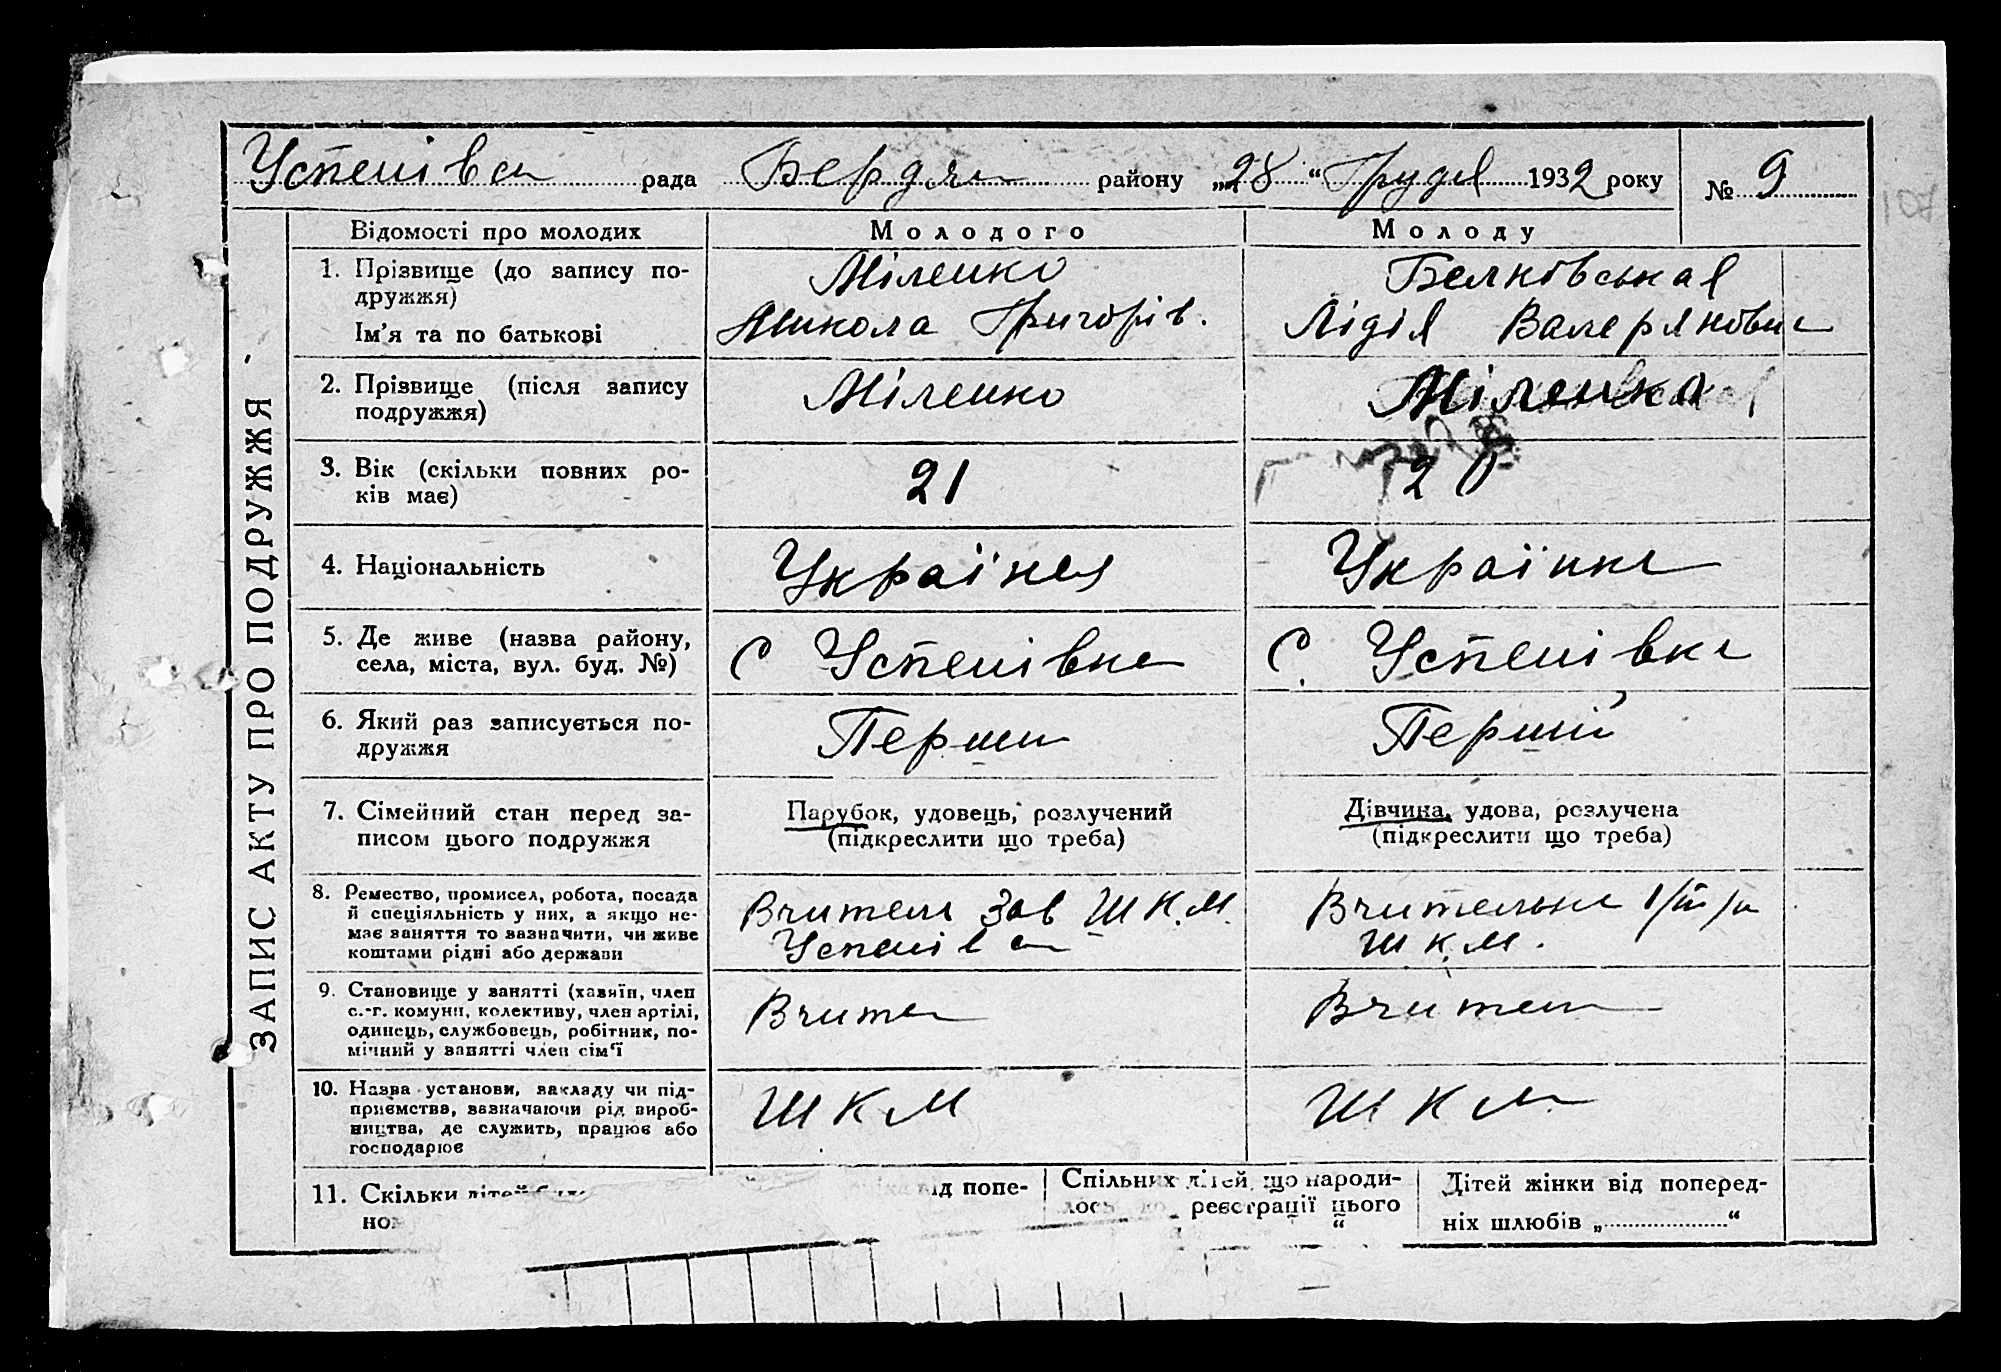 Успенівська рада Бердян району „28“ Грудня 1932 року № 9
107
ЗАПИС АКТУ ПРО ПОДРУЖЖЯ
Відомості про молодих Молодого Молоду
1. Прізвище (до запису по-
дружжя)
Ім’я та по батькові
Міленко
Микола Григорів.
Белковськая
Лідія Валеряновна
2. Прізвище (після запису
подружжя)
Міленко
Міленко
3. Вік (скільки повних ро-
ків має)
21
20
4. Національність
Українец
Українка
5. Де живе (назва району,
села, міста, вул. буд. №)
С Успенівка
С. Успенівка
6. Який раз записується по-
дружжя
Перши
Перший
7. Сімейний стан перед за-
писом цього подружжя
Парубок, удовець, розлучений
(підкреслити що треба)
Дівчина, удова, розлучена
(підкреслити що треба)
8. Ремество, промисел, робота, посада
й спеціяльність у них, а якщо не-
має заняття то зазначити, чи живе
коштами рідні або держави
Вчитель Зав ШК.М.
Вчителька
ШК.М.
9. Становище у занятті (хазяїн, член
с.-г. комуни, колективу, член артілі,
одинець, службовець, робітник, по-
мічний у занятті член сім’ї
Вчитель
Вчитель
10. Назва установи, закладу чи під-
приємства, зазначаючи рід вироб-
ництва, де служить, працює або
господарює
ШКМ
ШКМ
11. Скільки дітей
від попе-
Спільних дітей, що народи-
лось до реєстрації цього
“
Дітей жінки від поперед-
ніх шлюбів „ “